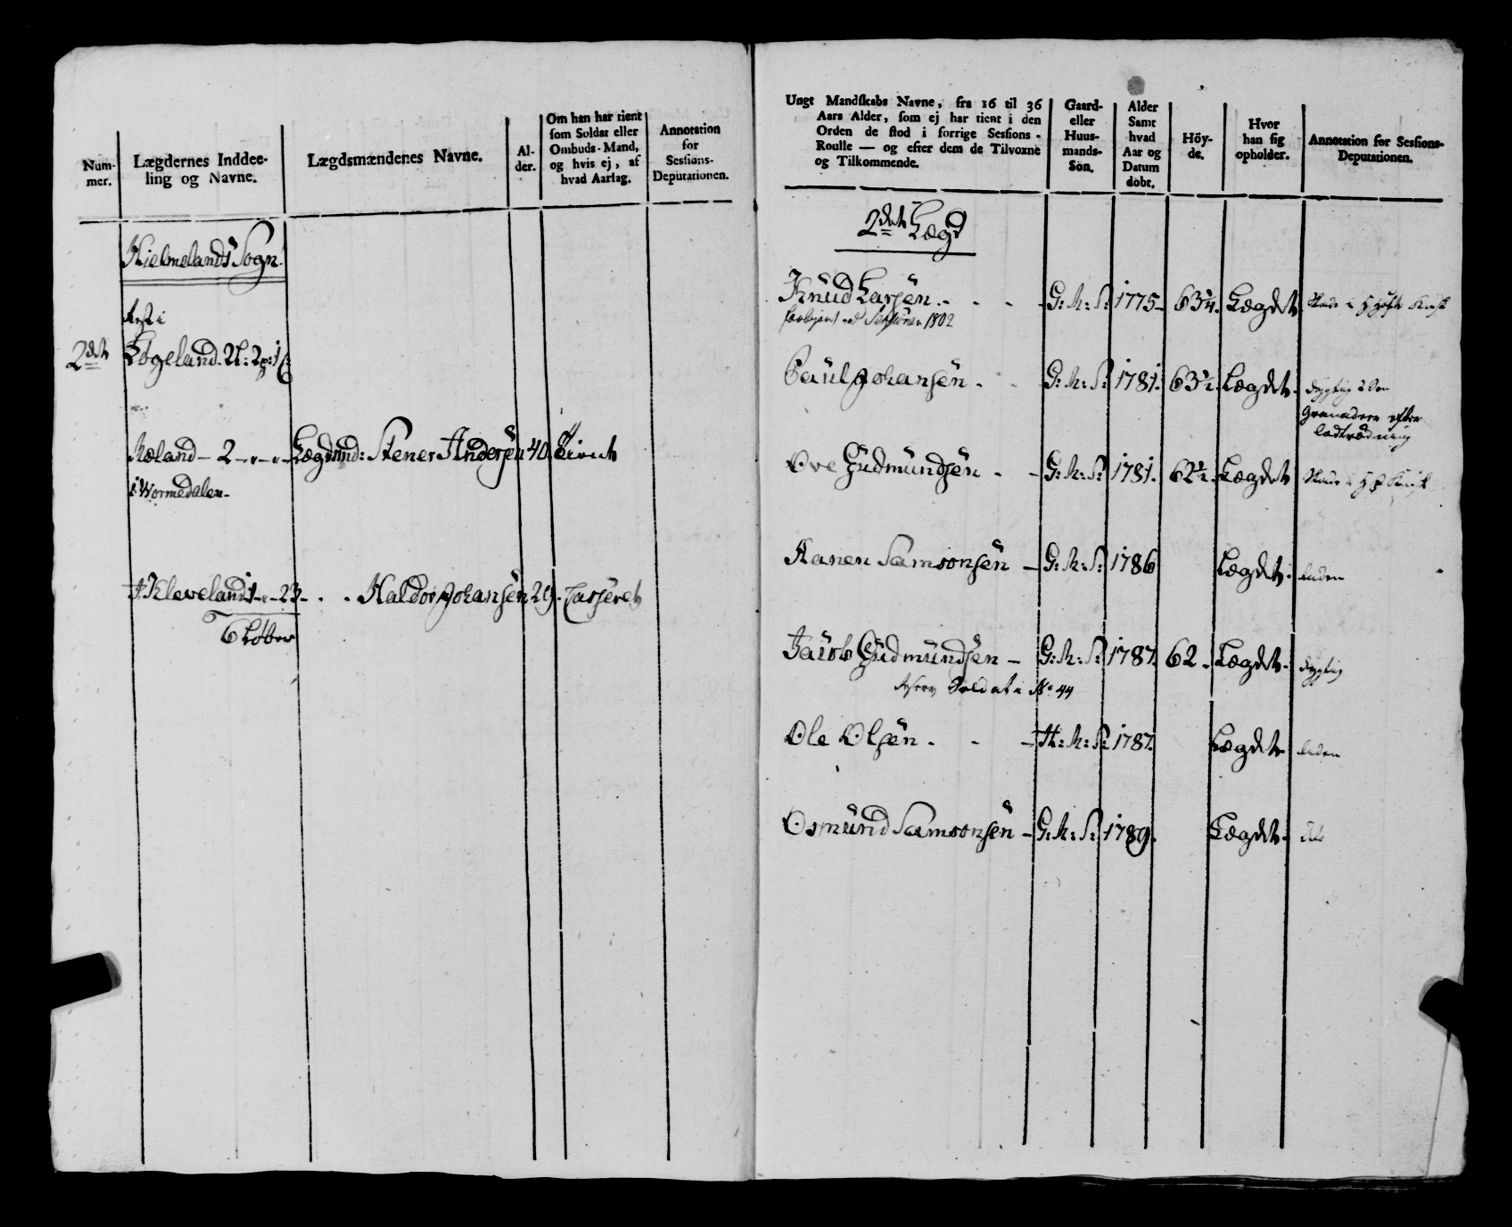 Num-
mer.
Lægdernes Inddee-
ling og Navne.
Lægdsmændenes Navne.
Al-
der.
Om han har tient
som Soldat eller
Ombuds-Mand,
og hvis ej, af
hvad Aarsag.
Annotation
for
Sessions-
Deputationen.
Hielmelands Sogn.
2det
Løgeland
Røland - 2 - Lægdsmd: Stener Andersen 40. Tient
i Wormedalen -
Kleveland 1 - 23 - Haldor Johansen 29. Casseret
6 Løber
Ungt Mandskabs Navne, fra 16 til 36
Aars Alder, som ej har tient i den
Orden de stod i forrige Sessions-
Roulle — og efter dem de Tilvoxne
og Tilkommende.
Gaard-
eller
Huus-
mands-
Søn.
Alder
Samt
hvad
Aar og
Datum
døbt.
Höy-
de.
Hvor
han sig
opholder.
Annotation for Sessions-
Deputationen.
2det Lægd
Knud Larsen - G: M: S: 1775 - 63 Lægdet
Sessionen 1802
Paul Johansen - G: M: S: 1781. 63 1/2. Lægdet. dygtig
Granadeer efter
Ove Gudmundsen - G: M: S: 1781. 62 1/2. Lægdet
Hanen Samsonsen - G: M: S: 1786 Lægdet. liden
Jacob Gudmundsen - G: M: S: 1787. 62 - Lægdet. dygtig
Soldat i No 44
Ole Olsen - H: M: S: 1787. Lægdet liden
Osmund Samsonsen - G: M: S: 1789. Lægdet.